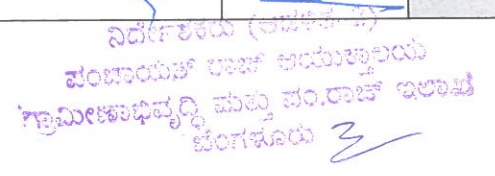 ನಿರ್ದೇಶಕರು
ಪಂಚಾಯತ್ ರಾಜ್ ಆಯುಕ್ತಾಲಯ
ಗ್ರಾಮೀಣಾಭಿವೃದ್ಧಿ ಮತ್ತು ಪಂ.ರಾಜ್ ಇಲಾಖೆ
ಬೆಂಗಳೂರು